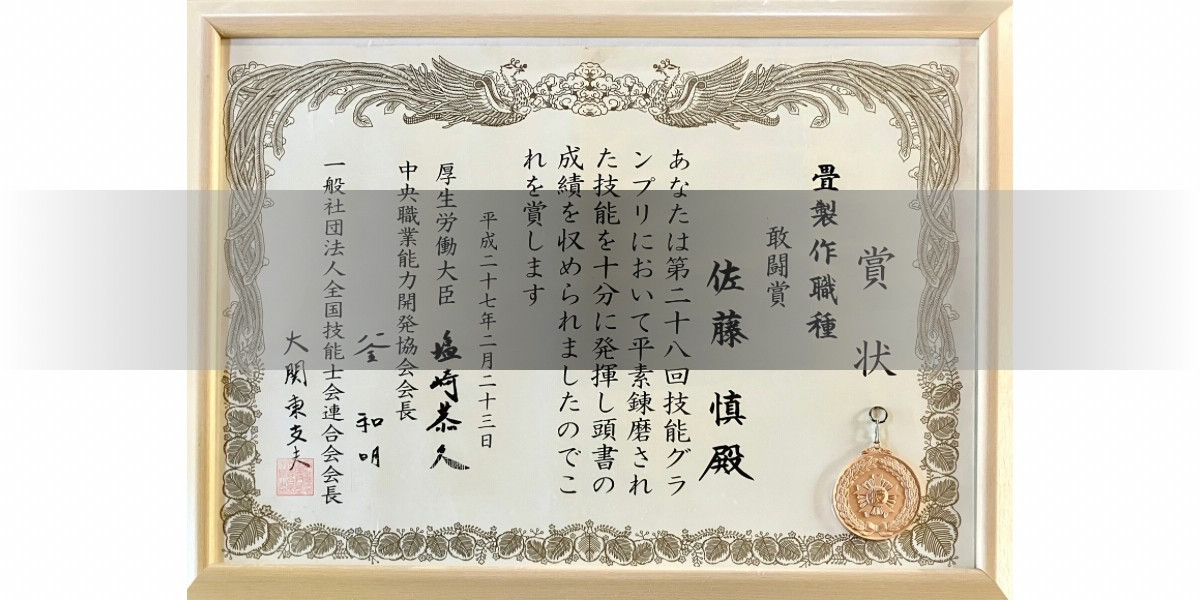 賞状
畳製作職種
敢闘賞
佐藤 慎殿
あなたは第二十八回技能グラ
ンプリにおいて平素錬磨され
た技能を十分に発揮し頭書の
成績を収められましたのでこ
れを賞します
平成二十七年二月二十三日
厚生労働大臣 塩崎恭久
中央職業能力開発協会会長
釜 和明
一般社団法人全国技能士会連合会会長
大関東支夫